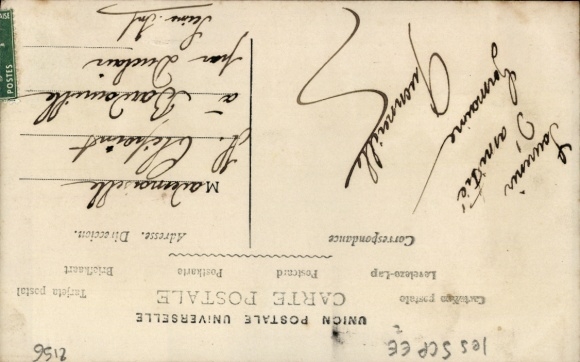 2156
les SCPEE
UNION POSTALE UNIVERSELLE
CARTE POSTALE
Cartolina postale
Levelezo-Lap
Postcard
Postkarte
Briefkaart
Tarjeta postal
Correspondance
Adresse. Direccion.
Souvenir
d'amitié
Germaine
Quesnville
Mademoiselle
H. Clépoint
à Bardouville
par Duclair
Seine Inf
POSTES